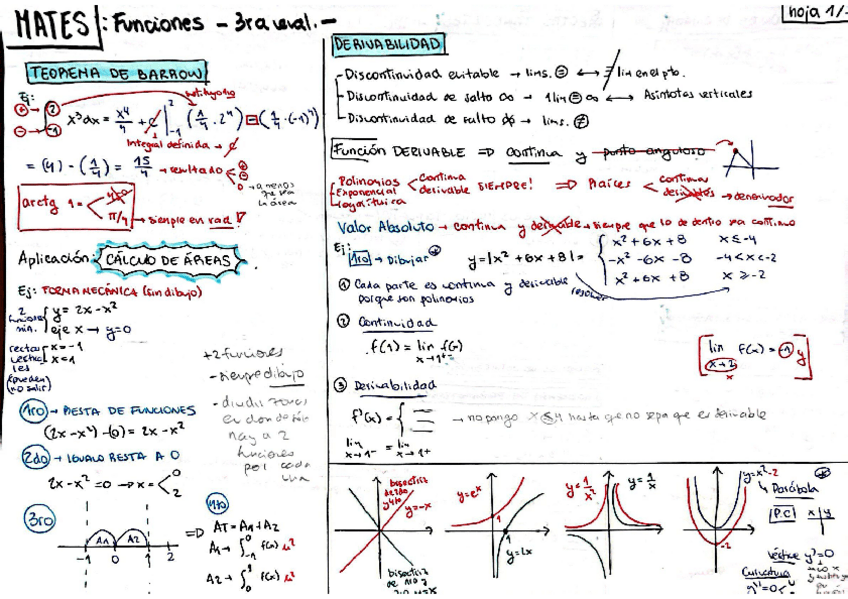 MATES : Funciones - 3ra eval. -
hoja 1/
TEOREMA DE BARROW
Ej:
sustituyendo
⊕ → 2
⊖ → -1
x³dx = x⁴/4 + ȼ |²₋₁ (1/4 · 2⁴) - (1/4 · (-1)⁴)
Integral definida → ȼ
= (4) - (1/4) = 15/4 → resultado
arctg 1 =
π/4 → siempre en rad !
Aplicación: CÁLCULO DE ÁREAS
Ej: FORMA MECÁNICA (sin dibujo)
2 funciones min.
y = 2x - x²
eje x → y = 0
rectas verticales
(pueden no salir)
x = -1
x = 1
+2 funciones
- siempre dibujo
- dividir zonas
en donde
hay a 2
funciones
por cada
una
1ro → RESTA DE FUNCIONES
(2x - x²) - (0) = 2x - x²
2do → IGUALO RESTA A 0
2x - x² = 0 → x = 0 2
3ro
A1 A2
-1 0 1 2
4to
⇒ AT = A1 + A2
A1 → ∫₋₁⁰ f(x) u²
A2 → ∫₀¹ f(x) u²
DERIVABILIDAD
- Discontinuidad evitable → lims. = ↔ ∄ lim en el pto.
- Discontinuidad de salto ∞ → 1 lim = ∞ ↔ Asíntotas verticales
- Discontinuidad de salto → lims. ≠
Función DERIVABLE ⇒ continua y punto anguloso
Polinomios
Exponencial
Logarítmica
continua
derivable SIEMPRE!
⇒ Raíces
continua
derivables → denominador
Valor Absoluto → continua y derivable → siempre que lo de dentro sea continuo
Ej:
1ro → Dibujar
y = |x² + 6x + 8| =
x² + 6x + 8 x ≤ -4
-x² - 6x - 8 -4 < x < -2
x² + 6x + 8 x ≥ -2
resolver
① Cada parte es continua y derivable
porque son polinomios
② Continuidad
f(1) = lim f(x)
x→1⁺⁻
lim f(x) = -1 y
x→2
x
③ Derivabilidad
f'(x) = { → no pongo x ≤ y hasta que no sepa que es derivable
lim = lim
x→1⁻ x→1⁺
bisectriz
de 2do
y 4to
y = -x
bisectriz
de 1ro y
y = eˣ
1
1
y = Lx
y = 1/x²
y = 1/x
y = x² - 2
↳ Parábola
-2
P.C x | y
vértice y' = 0
Curvatura
y'' = 0